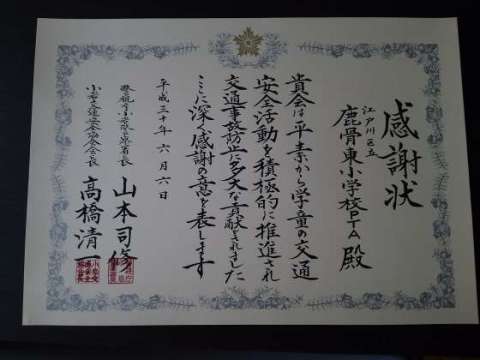 感謝状
江戸川区立
鹿骨東小学校PTA 殿
貴会は平素から学童の交通
安全活動を積極的に推進され
交通事故防止に多大な貢献をされました
ここに深く感謝の意を表します
平成三十年六月六日
警視庁小岩警察署長 山本司修
小岩交通安全協会会長 高橋清一